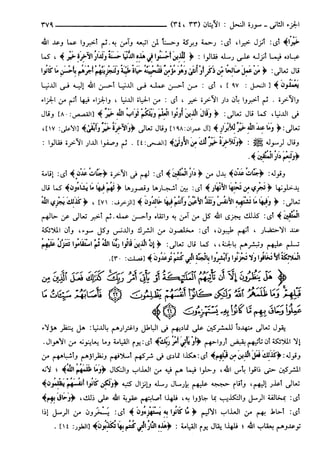 الجزء الثانى ـ سورة النحل : الآيتان (٣٣ ، ٣٤) ـــــــ ٣٧٩
﴿خَيْرًا﴾ أى: أنزل خيرا، أى: رحمة وبركة وحسناً لمن اتبعه وآمن به. ثم أخبروا عما وعد الله
عباده فيما أنزله على رسله فقالوا : ﴿لِّلَّذِينَ أَحْسَنُوا فِي هَٰذِهِ الدُّنْيَا حَسَنَةٌ وَلَدَارُ الْآخِرَةِ خَيْرٌ﴾ ، كما
قال تعالى: ﴿مَنْ عَمِلَ صَالِحًا مِّن ذَكَرٍ أَوْ أُنثَىٰ وَهُوَ مُؤْمِنٌ فَلَنُحْيِيَنَّهُ حَيَاةً طَيِّبَةً وَلَنَجْزِيَنَّهُمْ أَجْرَهُم بِأَحْسَنِ مَا كَانُوا
يَعْمَلُونَ﴾ [النحل : ٩٧] ، أى : من أحسن عمله فى الدنيا أحسن الله إليه فى الدنيا
والآخرة . ثم أخبروا بأن دار الآخرة خير ، أى : من الحياة الدنيا ، والجزاء فيها أتم من الجزاء
فى الدنيا، كما قال تعالى: ﴿وَقَالَ الَّذِينَ أُوتُوا الْعِلْمَ وَيْلَكُمْ ثَوَابُ اللَّهِ خَيْرٌ﴾ [القصص: ٨٠] وقال
تعالى: ﴿وَمَا عِندَ اللَّهِ خَيْرٌ لِّلْأَبْرَارِ﴾ [آل عمران: ١٩٨] وقال تعالى ﴿وَالْآخِرَةُ خَيْرٌ وَأَبْقَىٰ﴾ [الأعلى: ١٧]،
وقال لرسوله ﷺ : ﴿وَلَلْآخِرَةُ خَيْرٌ لَّكَ مِنَ الْأُولَىٰ﴾ [الضحى: ٤] . ثم وصفوا الدار الآخرة فقالوا :
﴿وَلَنِعْمَ دَارُ الْمُتَّقِينَ﴾ .
وقوله: ﴿جَنَّاتُ عَدْنٍ﴾ بدل من ﴿دَارُ الْمُتَّقِينَ﴾ أى: لهم فى الآخرة ﴿جَنَّاتُ عَدْنٍ﴾ أى: إقامة
يدخلونها ﴿تَجْرِي مِن تَحْتِهَا الْأَنْهَارُ﴾ أى: بين أشجارها وقصورها ﴿لَهُمْ فِيهَا مَا يَشَاءُونَ﴾ كما قال
تعالى: ﴿وَفِيهَا مَا تَشْتَهِيهِ الْأَنفُسُ وَتَلَذُّ الْأَعْيُنُ وَأَنتُمْ فِيهَا خَالِدُونَ﴾ [الزخرف: ٧١] ، ﴿كَذَٰلِكَ يَجْزِي اللَّهُ
الْمُتَّقِينَ﴾ أى: كذلك يجزى الله كل من آمن به واتقاه وأحسن عمله. ثم أخبر تعالى عن حالهم
عند الاحتضار ، أنهم طيبون، أى: مخلصون من الشرك والدنس وكل سوء، وأن الملائكة
تسلم عليهم وتبشرهم بالجنة،، كما قال تعالى: ﴿إِنَّ الَّذِينَ قَالُوا رَبُّنَا اللَّهُ ثُمَّ اسْتَقَامُوا تَتَنَزَّلُ عَلَيْهِمُ
الْمَلَائِكَةُ أَلَّا تَخَافُوا وَلَا تَحْزَنُوا وَأَبْشِرُوا بِالْجَنَّةِ الَّتِي كُنتُمْ تُوعَدُونَ﴾ [فصلت: ٣٠].
﴿هَلْ يَنظُرُونَ إِلَّا أَن تَأْتِيَهُمُ الْمَلَائِكَةُ أَوْ يَأْتِيَ أَمْرُ رَبِّكَ كَذَٰلِكَ فَعَلَ الَّذِينَ مِن
قَبْلِهِمْ وَمَا ظَلَمَهُمُ اللَّهُ وَلَٰكِن كَانُوا أَنفُسَهُمْ يَظْلِمُونَ ۝٣٣ فَأَصَابَهُمْ سَيِّئَاتُ مَا عَمِلُوا
وَحَاقَ بِهِم مَّا كَانُوا بِهِ يَسْتَهْزِئُونَ ۝٣٤﴾
يقول تعالى متهدداً للمشركين على تماديهم فى الباطل واغترارهم بالدنيا: هل ينتظر هؤلاء
إلا الملائكة أن تأتيهم بقبض أرواحهم ﴿أَوْ يَأْتِيَ أَمْرُ رَبِّكَ﴾ أى: يوم القيامة وما يعاينونه من الأهوال.
وقوله: ﴿كَذَٰلِكَ فَعَلَ الَّذِينَ مِن قَبْلِهِمْ﴾ أى: هكذا تمادى فى شركهم أسلافهم ونظراؤهم وأشباههم من
المشركين حتى ذاقوا بأس الله، وحلوا فيما هم فيه من العذاب والنكال ﴿وَمَا ظَلَمَهُمُ اللَّهُ﴾ ؛ لأنه
تعالى أعذر إليهم، وأقام حججه عليهم بإرسال رسله وإنزال كتبه ﴿وَلَٰكِن كَانُوا أَنفُسَهُمْ يَظْلِمُونَ﴾
أى: بمخالفة الرسل والتكذيب بما جاؤوا به، فلهذا أصابتهم عقوبة الله على ذلك، ﴿وَحَاقَ بِهِم﴾
أى: أحاط بهم من العذاب الأليم ﴿مَّا كَانُوا بِهِ يَسْتَهْزِئُونَ﴾ أى: يَسْخرون من الرسل إذا
توعدوهم بعقاب الله ، فلهذا يقال يوم القيامة : ﴿هَٰذِهِ النَّارُ الَّتِي كُنتُم بِهَا تُكَذِّبُونَ﴾ [الطور: ١٤] .